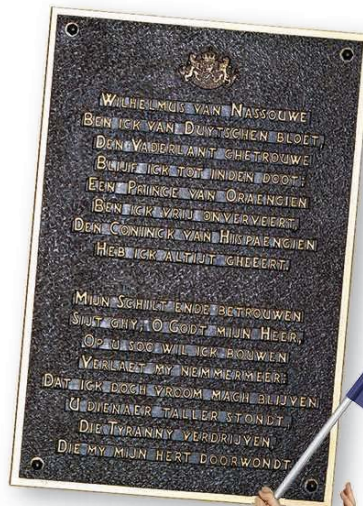 WILHELMUS VAN NASSOUWE
BEN ICK VAN DUYTSCHEN BLOET,
DEN VADERLANT GHETROUWE
BLIJF ICK TOT INDEN DOOT:
EEN PRINCE VAN ORAENGIEN
BEN ICK VRIJ ONVERVEERT,
DEN CONINCK VAN HISPAENGIEN
HEB ICK ALTIJT GHEEERT.
MIJN SCHILT ENDE BETROUWEN
SIJT GHY, O GODT MIJN HEER,
OP U SOO WIL ICK BOUWEN
VERLAET MY NEMMERMEER:
DAT ICK DOCH VROOM MACH BLIJVEN
U DIENAER TALLER STONDT
DIE TYRANNY VERDRIJVEN,
DIE MY MIJN HERT DOORWONDT